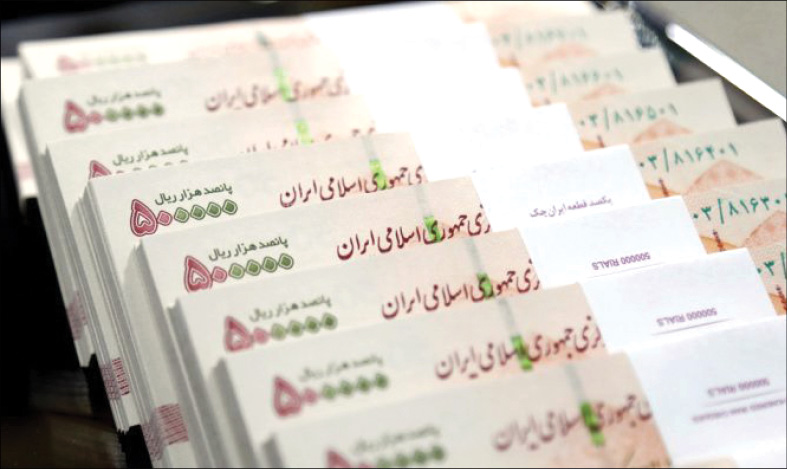 پانصد هزار ریال
۵۰۰۰۰۰
جمهوری اسلامی ایران
۰۳/۸۱۶۶۰۱
پانصد هزار ریال
۵۰۰۰۰۰
جمهوری اسلامی ایران
۰۳/۸۱۶۵۰۱
پانصد هزار ریال
۵۰۰۰۰۰
جمهوری اسلامی ایران
یکصد قطعه ایران چک
۰۳/۸۱۶۴۰۱
پانصد هزار ریال
۵۰۰۰۰۰
جمهوری اسلامی ایران
500000 RIALS
پانصد هزار ریال
۵۰۰۰۰۰
جمهوری اسلامی ایران
500000 RIALS
پانصد هزار ریال
۵۰۰۰۰۰
جمهوری اسلامی ایران
500000 RIALS
جمهوری اسلامی ایران